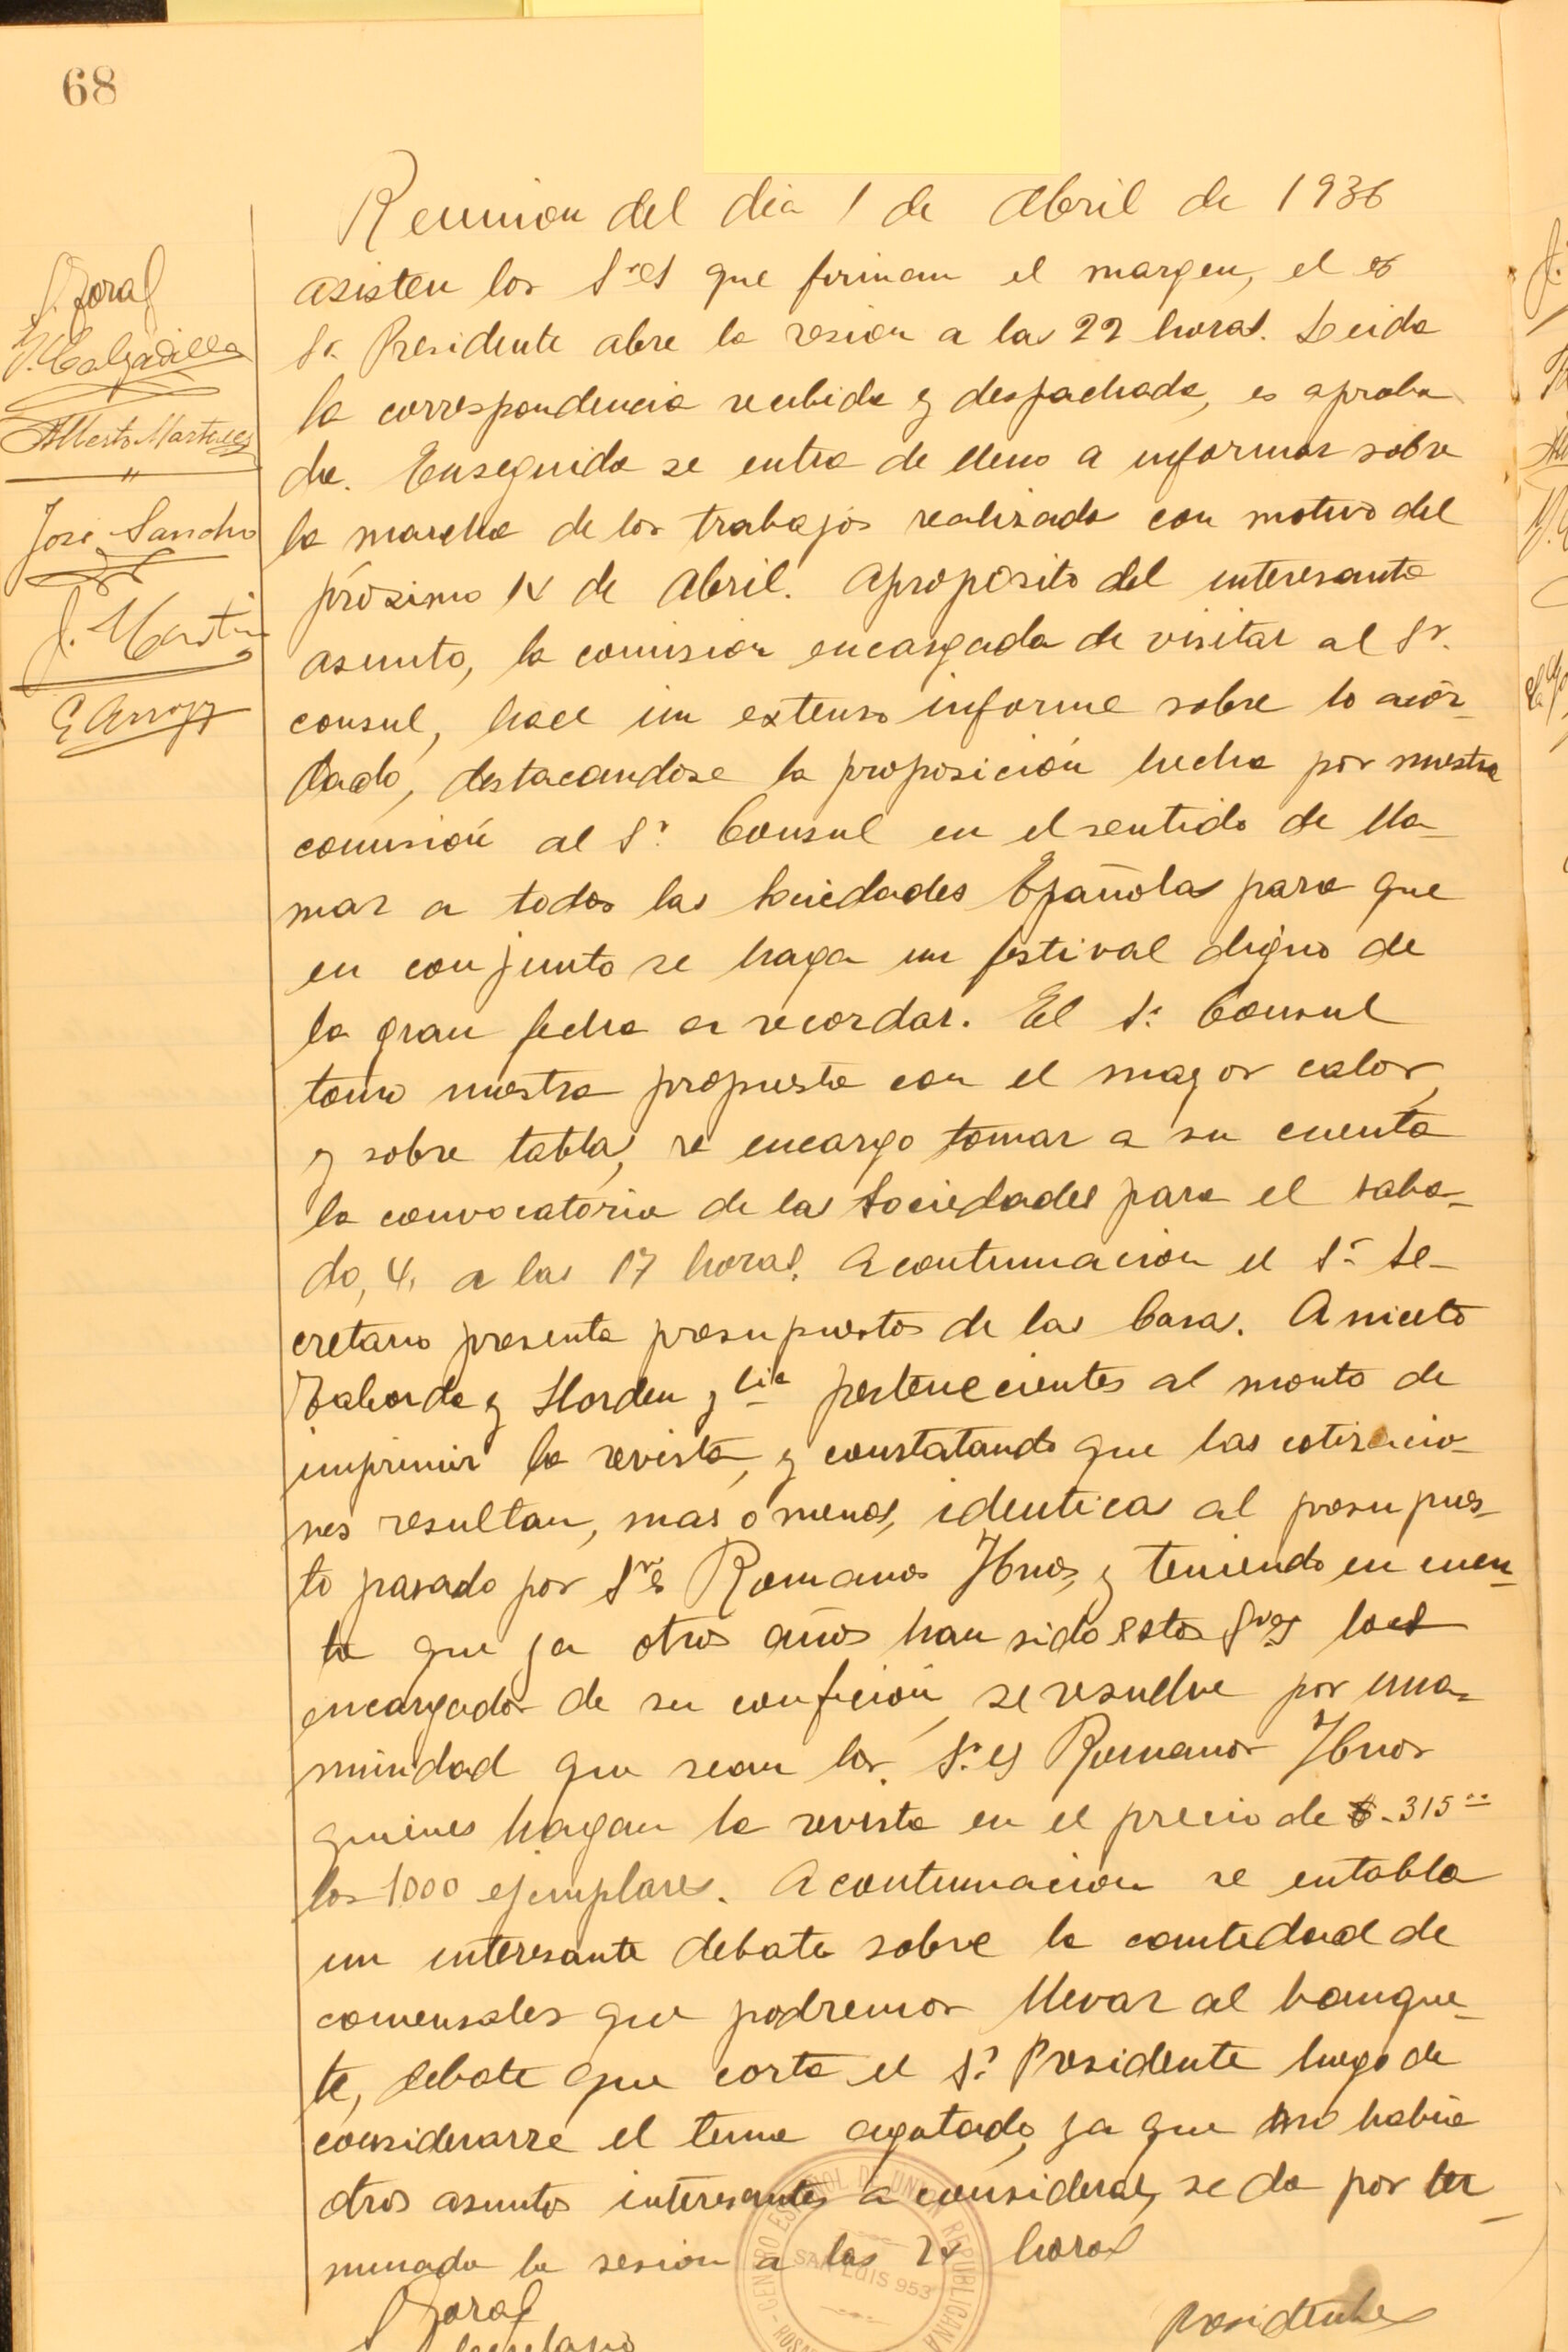 68
Reunion del dia 1 de Abril de 1936
S. Zoral
V. Calzadilla
Alberto Martinez
José Sancho
J. Martin
asisten los Sres que firman el margen, el
Sr. Presidente abre la resion a las 22 horas. Leida
la correspondencia recibida y despachada, es aproba
da. Enseguida se entra de lleno a informar sobre
la marcha de los trabajos realizado con motivo del
próximo 14 de Abril. Aproposito del interesante
asunto, la comision encargada de visitar al Sr.
consul, hace un extenso informe sobre lo acor-
dado, destacandose la proposición hecha por nuestra
comisión al Sr. Consul en el sentido de lla-
mar a todas las Sociedades Española para que
en conjunto se haga un festival digno de
la gran fecha a recordar. El Sr. Consul
tomo nuestra propuesta con el mayor calor,
y sobre tabla, se encargo tomar a su cuenta
la convocatoria de las Sociedades para el saba-
do, 4, a las 17 horas. Acontinuacion el Sr. Se-
cretario presenta presupuestos de las Casas. Aniceto
Taborda y Horden y Cia pertenecientes al monto de
imprimir la revista, y constatando que las cotizacio-
nes resultan, mas o menos, identicas al presupues-
to pasado por Sres Romanos Hnos, y teniendo en cuen-
ta que ya otros años han sido estos Sres los
encargados de su confición, se resuelve por una-
nimidad que sean los Sres Romanos Hnos
quienes hagan la revista en el precio de $-315
los 1000 ejemplares. Acontinuacion se entabla
un interesante debate sobre la cantidad de
comensales que podremos llevar al banque-
te, debate que corta el Sr. Presidente luego de
considerarse el tema agotado, ya que no habia
otros asuntos interesantes a considerar, se da por ter-
minada la sesion a las 24 horas
S Zoral
Secretario
Presidente
CENTRO ESPAÑOL DE UNION REPUBLICANA
SAN LUIS 953